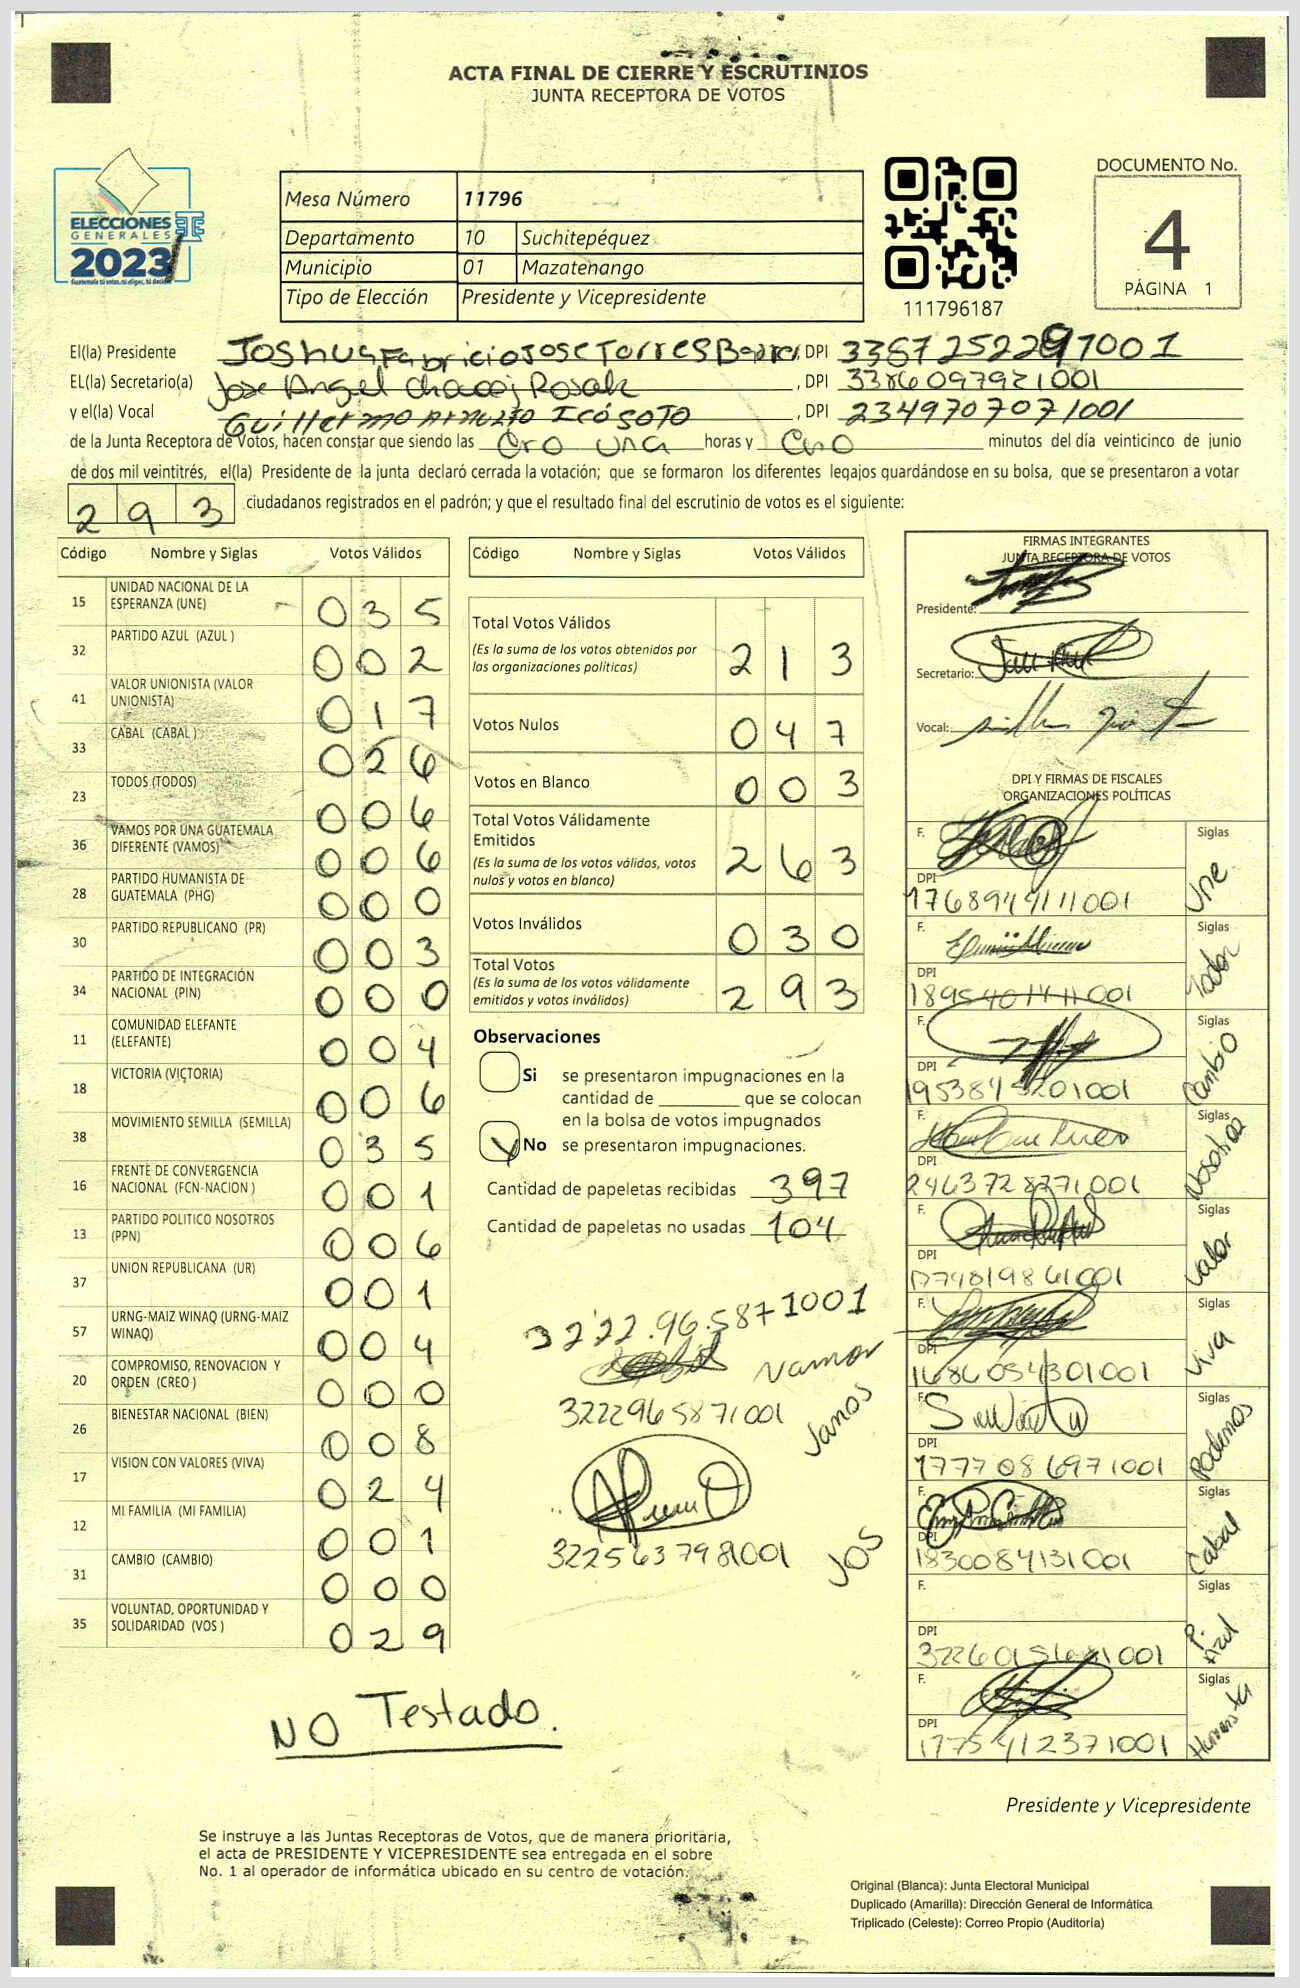 ACTA FINAL DE CIERRE Y ESCRUTINIOS
JUNTA RECEPTORA DE VOTOS
ELECCIONES
GENERALES
2023
Guatemala tú votas, tú eliges, tú decides
Mesa Número 11796
Departamento 10 Suchitepéquez
Municipio 01 Mazatenango
Tipo de Elección Presidente y Vicepresidente
111796187
DOCUMENTO No.
4
PÁGINA 1
El(la) Presidente Joshua Fabricio Jose Torres , DPI 3367252297001
EL(la) Secretario(a) Jose Angel Rosak , DPI 3386097921001
y el(la) Vocal Guillermo Icó SOTO , DPI 2349707071001
de la Junta Receptora de Votos, hacen constar que siendo las horas y minutos del día veinticinco de junio
de dos mil veintitrés, el(la) Presidente de la junta declaró cerrada la votación; que se formaron los diferentes legajos guardándose en su bolsa, que se presentaron a votar
293 ciudadanos registrados en el padrón; y que el resultado final del escrutinio de votos es el siguiente:
Código Nombre y Siglas Votos Válidos
15 UNIDAD NACIONAL DE LA ESPERANZA (UNE) 035
32 PARTIDO AZUL (AZUL ) 002
41 VALOR UNIONISTA (VALOR UNIONISTA) 017
33 CABAL (CABAL ) 026
23 TODOS (TODOS) 006
36 VAMOS POR UNA GUATEMALA DIFERENTE (VAMOS) 006
28 PARTIDO HUMANISTA DE GUATEMALA (PHG) 000
30 PARTIDO REPUBLICANO (PR) 003
34 PARTIDO DE INTEGRACIÓN NACIONAL (PIN) 000
11 COMUNIDAD ELEFANTE (ELEFANTE) 004
18 VICTORIA (VICTORIA) 006
38 MOVIMIENTO SEMILLA (SEMILLA) 035
16 FRENTE DE CONVERGENCIA NACIONAL (FCN-NACION ) 001
13 PARTIDO POLITICO NOSOTROS (PPN) 006
37 UNION REPUBLICANA (UR) 001
57 URNG-MAIZ WINAQ (URNG-MAIZ WINAQ) 004
20 COMPROMISO, RENOVACION Y ORDEN (CREO ) 000
26 BIENESTAR NACIONAL (BIEN) 008
17 VISION CON VALORES (VIVA) 024
12 MI FAMILIA (MI FAMILIA) 001
31 CAMBIO (CAMBIO) 000
35 VOLUNTAD, OPORTUNIDAD Y SOLIDARIDAD (VOS ) 029
NO Testado.
Código Nombre y Siglas Votos Válidos
Total Votos Válidos 213
(Es la suma de los votos obtenidos por
las organizaciones políticas)
Votos Nulos 047
Votos en Blanco 003
Total Votos Válidamente
Emitidos 263
(Es la suma de los votos válidos, votos
nulos y votos en blanco)
Votos Inválidos 030
Total Votos 293
(Es la suma de los votos válidamente
emitidos y votos inválidos)
Observaciones
Si se presentaron impugnaciones en la
cantidad de ________ que se colocan
en la bolsa de votos impugnados
No se presentaron impugnaciones.
Cantidad de papeletas recibidas 397
Cantidad de papeletas no usadas 104
3222.96.5871001
Vamos
3222965871001
3225637981001
JOS
FIRMAS INTEGRANTES
JUNTA RECEPTORA DE VOTOS
Presidente:
Secretario:
Vocal:
DPI Y FIRMAS DE FISCALES
ORGANIZACIONES POLÍTICAS
F. Siglas Une.
DPI 1768944111001
F. Siglas Todos
DPI 1895401411001
F. Siglas Cambio
DPI 1953845201001
F. Siglas Nosotros
DPI 2463728771001
F. Siglas Valor
DPI 1774819861001
F. Siglas Viva
DPI 1686054301001
F. Siglas Podemos
DPI 1777086971001
F. Siglas Cabal
DPI 1830084131001
F. Siglas P. Azul
DPI
F. Siglas Humanista
DPI 1775412371001
Presidente y Vicepresidente
Se instruye a las Juntas Receptoras de Votos, que de manera prioritaria,
el acta de PRESIDENTE Y VICEPRESIDENTE sea entregada en el sobre
No. 1 al operador de informática ubicado en su centro de votación.
Original (Blanca): Junta Electoral Municipal
Duplicado (Amarilla): Dirección General de Informática
Triplicado (Celeste): Correo Propio (Auditoría)